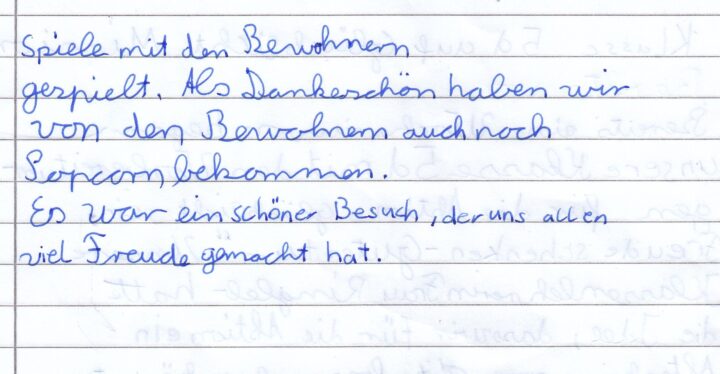 Spiele mit den Bewohnern
gespielt. Als Dankeschön haben wir
von den Bewohnern auch noch
Popcorn bekommen.
Es war ein schöner Besuch, der uns allen
viel Freude gemacht hat.